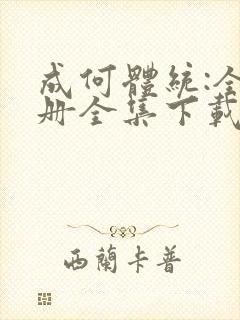 成何體統:全
册全集下載
西蘭卡普